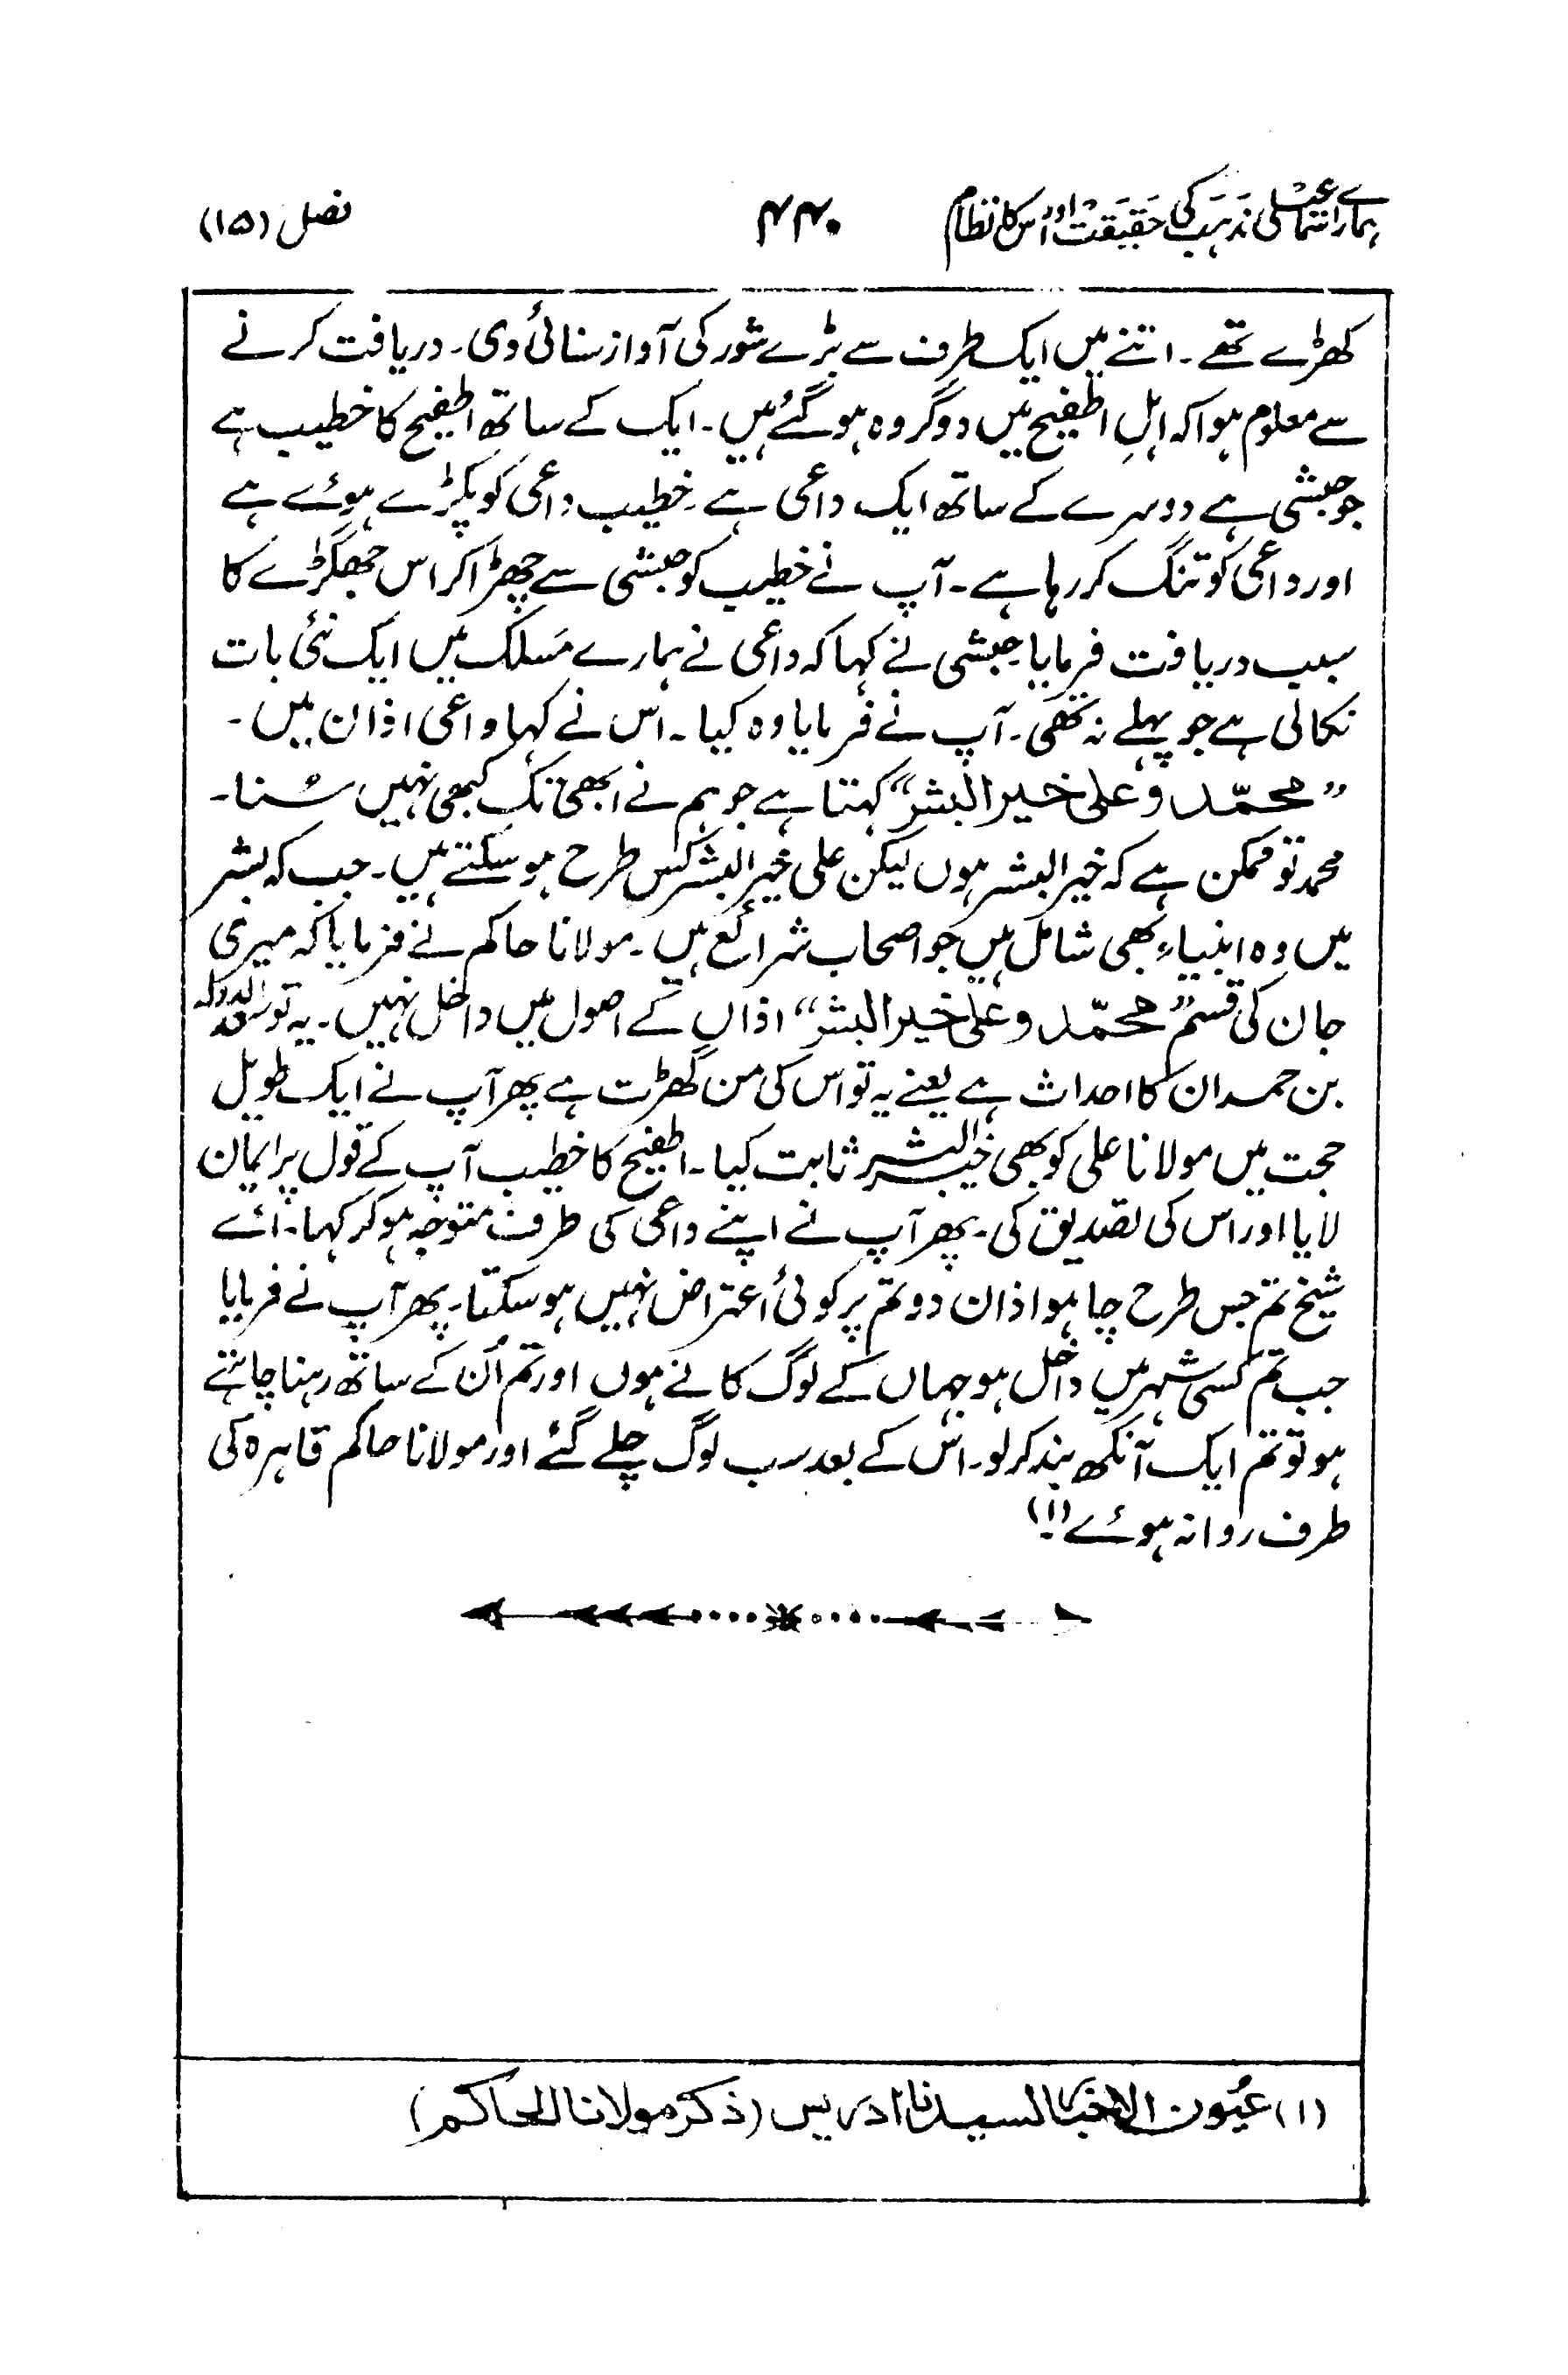 ہمارے اسماعیلی مذہب کی حقیقت اور اس کا نظام ۴۴۰ فصل (۱۵)
کھڑے تھے۔ اتنے میں ایک طرف سے بڑے شور کی آواز سنائی دی۔ دریافت کرنے
سے معلوم ہوا کہ اہلِ اطفیح میں دو گروہ ہو گئے ہیں۔ ایک کے ساتھ اطفیح کا خطیب ہے
جو حبشی ہے دوسرے کے ساتھ ایک داعی ہے۔ خطیب داعی کو پکڑے ہوئے ہے
اور داعی کو تنگ کر رہا ہے۔ آپ نے خطیب کو حبشی سے چھڑا کر اس جھگڑے کا
سبب دریافت فرمایا۔ حبشی نے کہا کہ داعی نے ہمارے مَسلک میں ایک نئی بات
نکالی ہے جو پہلے نہ تھی۔ آپ نے فرمایا وہ کیا۔ اس نے کہا داعی اذان میں۔
”محمّد وعلی خیر البشر“ کہتا ہے جو ہم نے ابھی تک کبھی نہیں سُنا۔
محمد تو ممکن ہے کہ خیر البشر ہوں لیکن علی خیر البشر کس طرح ہو سکتے ہیں۔ جب کہ بشر
میں وہ انبیاء بھی شامل ہیں جو اصحاب شرائع ہیں۔ مولانا حاکم نے فرمایا کہ میری
جان کی قسم ”محمّد وعلی خیر البشر“ اذاں کے اصول میں داخل نہیں۔ یہ تو سعد الدولہ
بن حمدان کا احداث ہے یعنے یہ تو اس کی من گھڑت ہے پھر آپ نے ایک طویل
حجت میں مولانا علی کو بھی خیر البشر ثابت کیا۔ اطفیح کا خطیب آپ کے قول پر ایمان
لایا اور اس کی تصدیق کی۔ پھر آپ نے اپنے داعی کی طرف متوجہ ہو کر کہا۔ اے
شیخ تم جس طرح چاہو اذان دو تم پر کوئی اعتراض نہیں ہو سکتا۔ پھر آپ نے فرمایا
جب تم کسی شہر میں داخل ہو جہاں کے لوگ کانے ہوں اور تم اُن کے ساتھ رہنا چاہتے
ہو تو تم ایک آنکھ بند کر لو۔ اس کے بعد سب لوگ چلے گئے اور مولانا حاکم قاہرہ کی
طرف روانہ ہوئے (۱)
(۱) عیُون الاخبار لسیدنا ادریس (ذکر مولانا الحاکم)